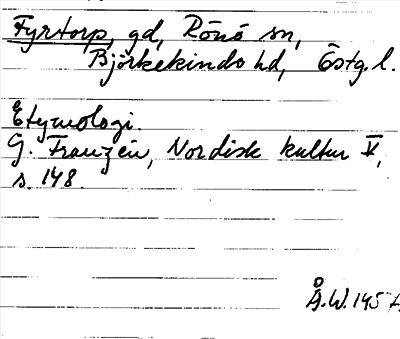 Fyrtorp, gd, Rönö sn,
Björkekinds hd, Östg.l.
Etymologi.
G. Franzén, Nordisk kultur V,
s. 148.
Å.W. 1957.